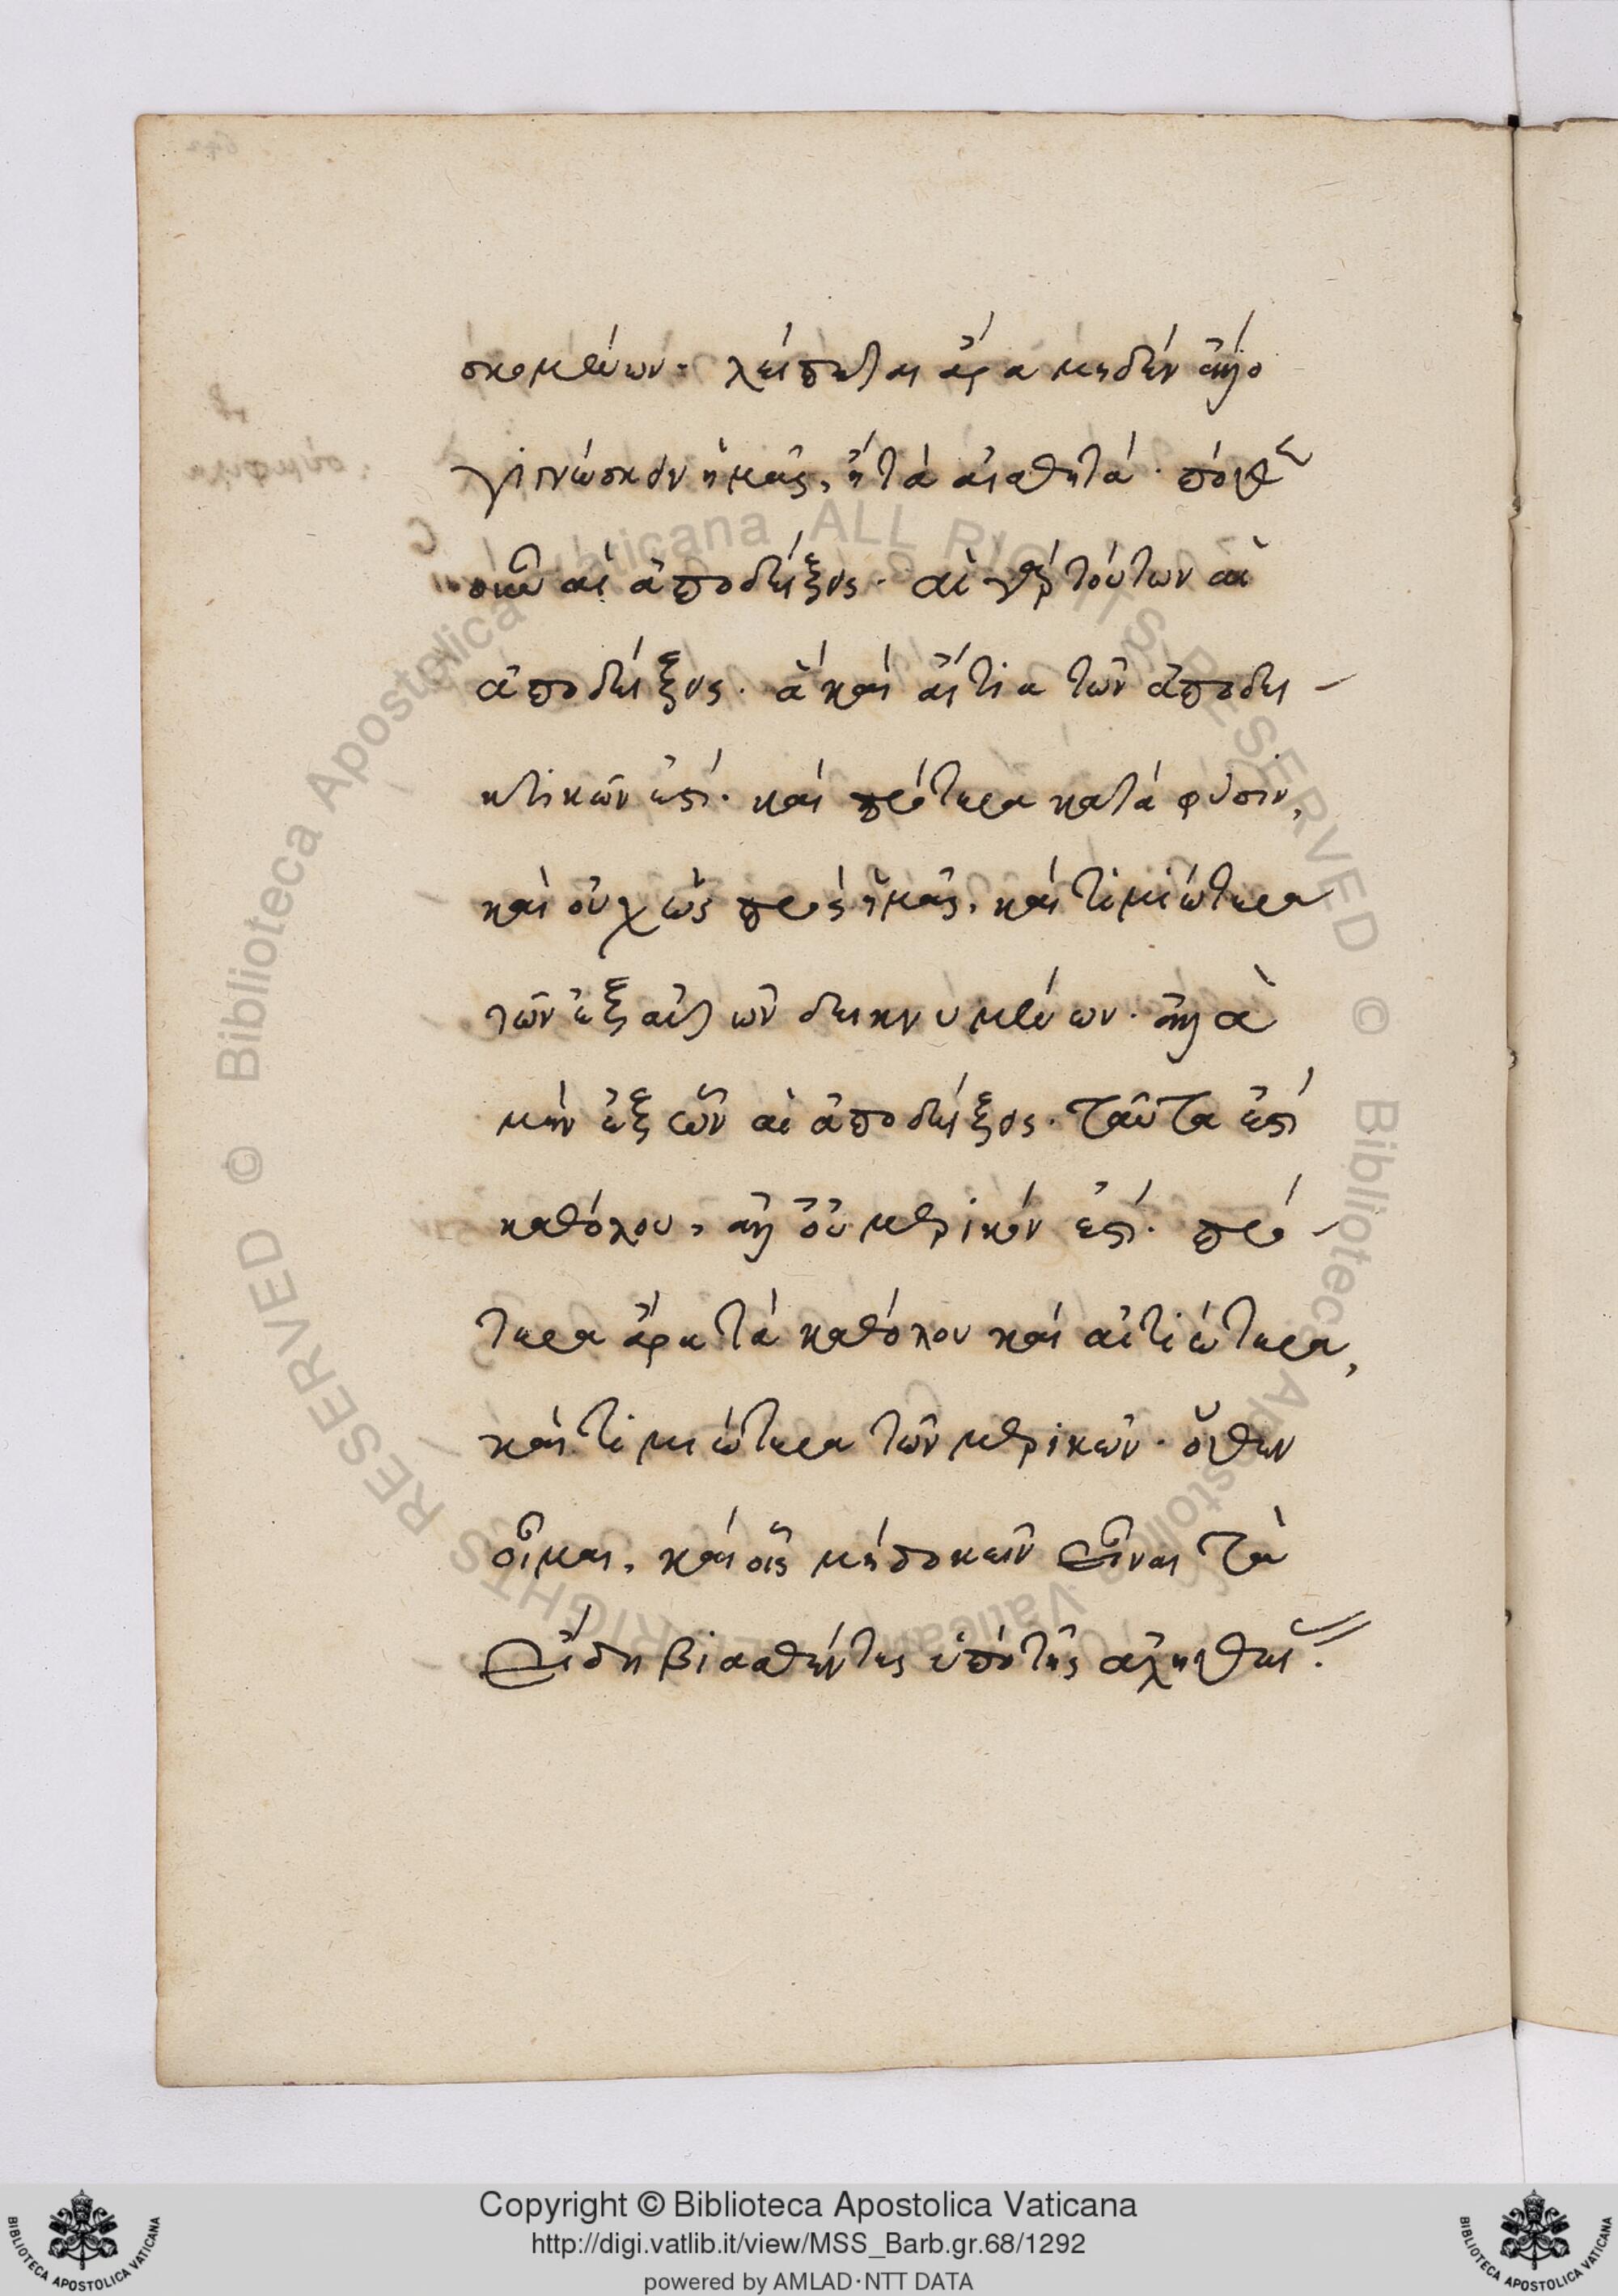 σκομένων· λείπεται ἄρα μηδὲν ἄλλο
γινώσκειν ἡμᾶς, ἢ τὰ αἰσθητά· πόθεν
οὖν αἱ ἀποδείξεις· αἱ γὰρ τούτων αἱ
ἀποδείξεις· ἃ καὶ αἴτια τῶν ἀποδει-
κτικῶν ἐστί· καὶ πρότερα κατὰ φύσιν,
καὶ οὐχ ὡς πρὸς ἡμᾶς, καὶ τιμιώτερα
τῶν ἐξ αὐτῶν δεικνυμένων· ἀλλὰ
μὴν ἐξ ὧν αἱ ἀποδείξεις· ταῦτα ἐστί
καθόλου, ἀλλ' οὐ μερικόν ἐστι· πρό-
τερα ἄρα τὰ καθόλου καὶ αἰτιώτερα,
καὶ τιμιώτερα τῶν μερικῶν· ὅθεν
οἶμαι, καὶ οἷς μὴ δοκεῖν εἶναι τὰ
εἴδη βιασθέντες ὑπὸ τῆς ἀληθεί.
Copyright © Biblioteca Apostolica Vaticana
http://digi.vatlib.it/view/MSS_Barb.gr.68/1292
powered by AMLAD·NTT DATA